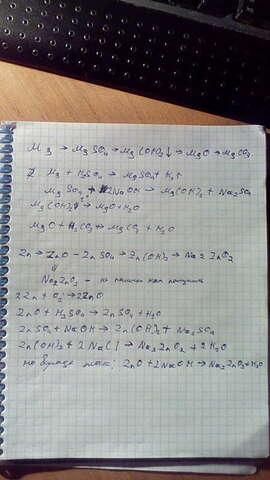 Mg → MgSO4 → Mg(OH)2↓ → MgO → MgCO3
Mg + H2SO4 → MgSO4 + H2↑
MgSO4 + 2NaOH → Mg(OH)2 + Na2SO4
Mg(OH)2 → MgO + H2O
MgO + H2CO3 → MgCO3 + H2O
Zn → ZnO - ZnSO4 → Zn(OH)2 → Na2ZnO2
Na2ZnO2 - не как получить
2Zn + O2 → 2ZnO
ZnO + H2SO4 → ZnSO4 + H2O
ZnSO4 + NaOH → Zn(OH)2 + Na2SO4
Zn(OH)2 + 2NaCl → Na2ZnO2 + 2H2O
ZnO + 2NaOH → Na2ZnO2 + H2O